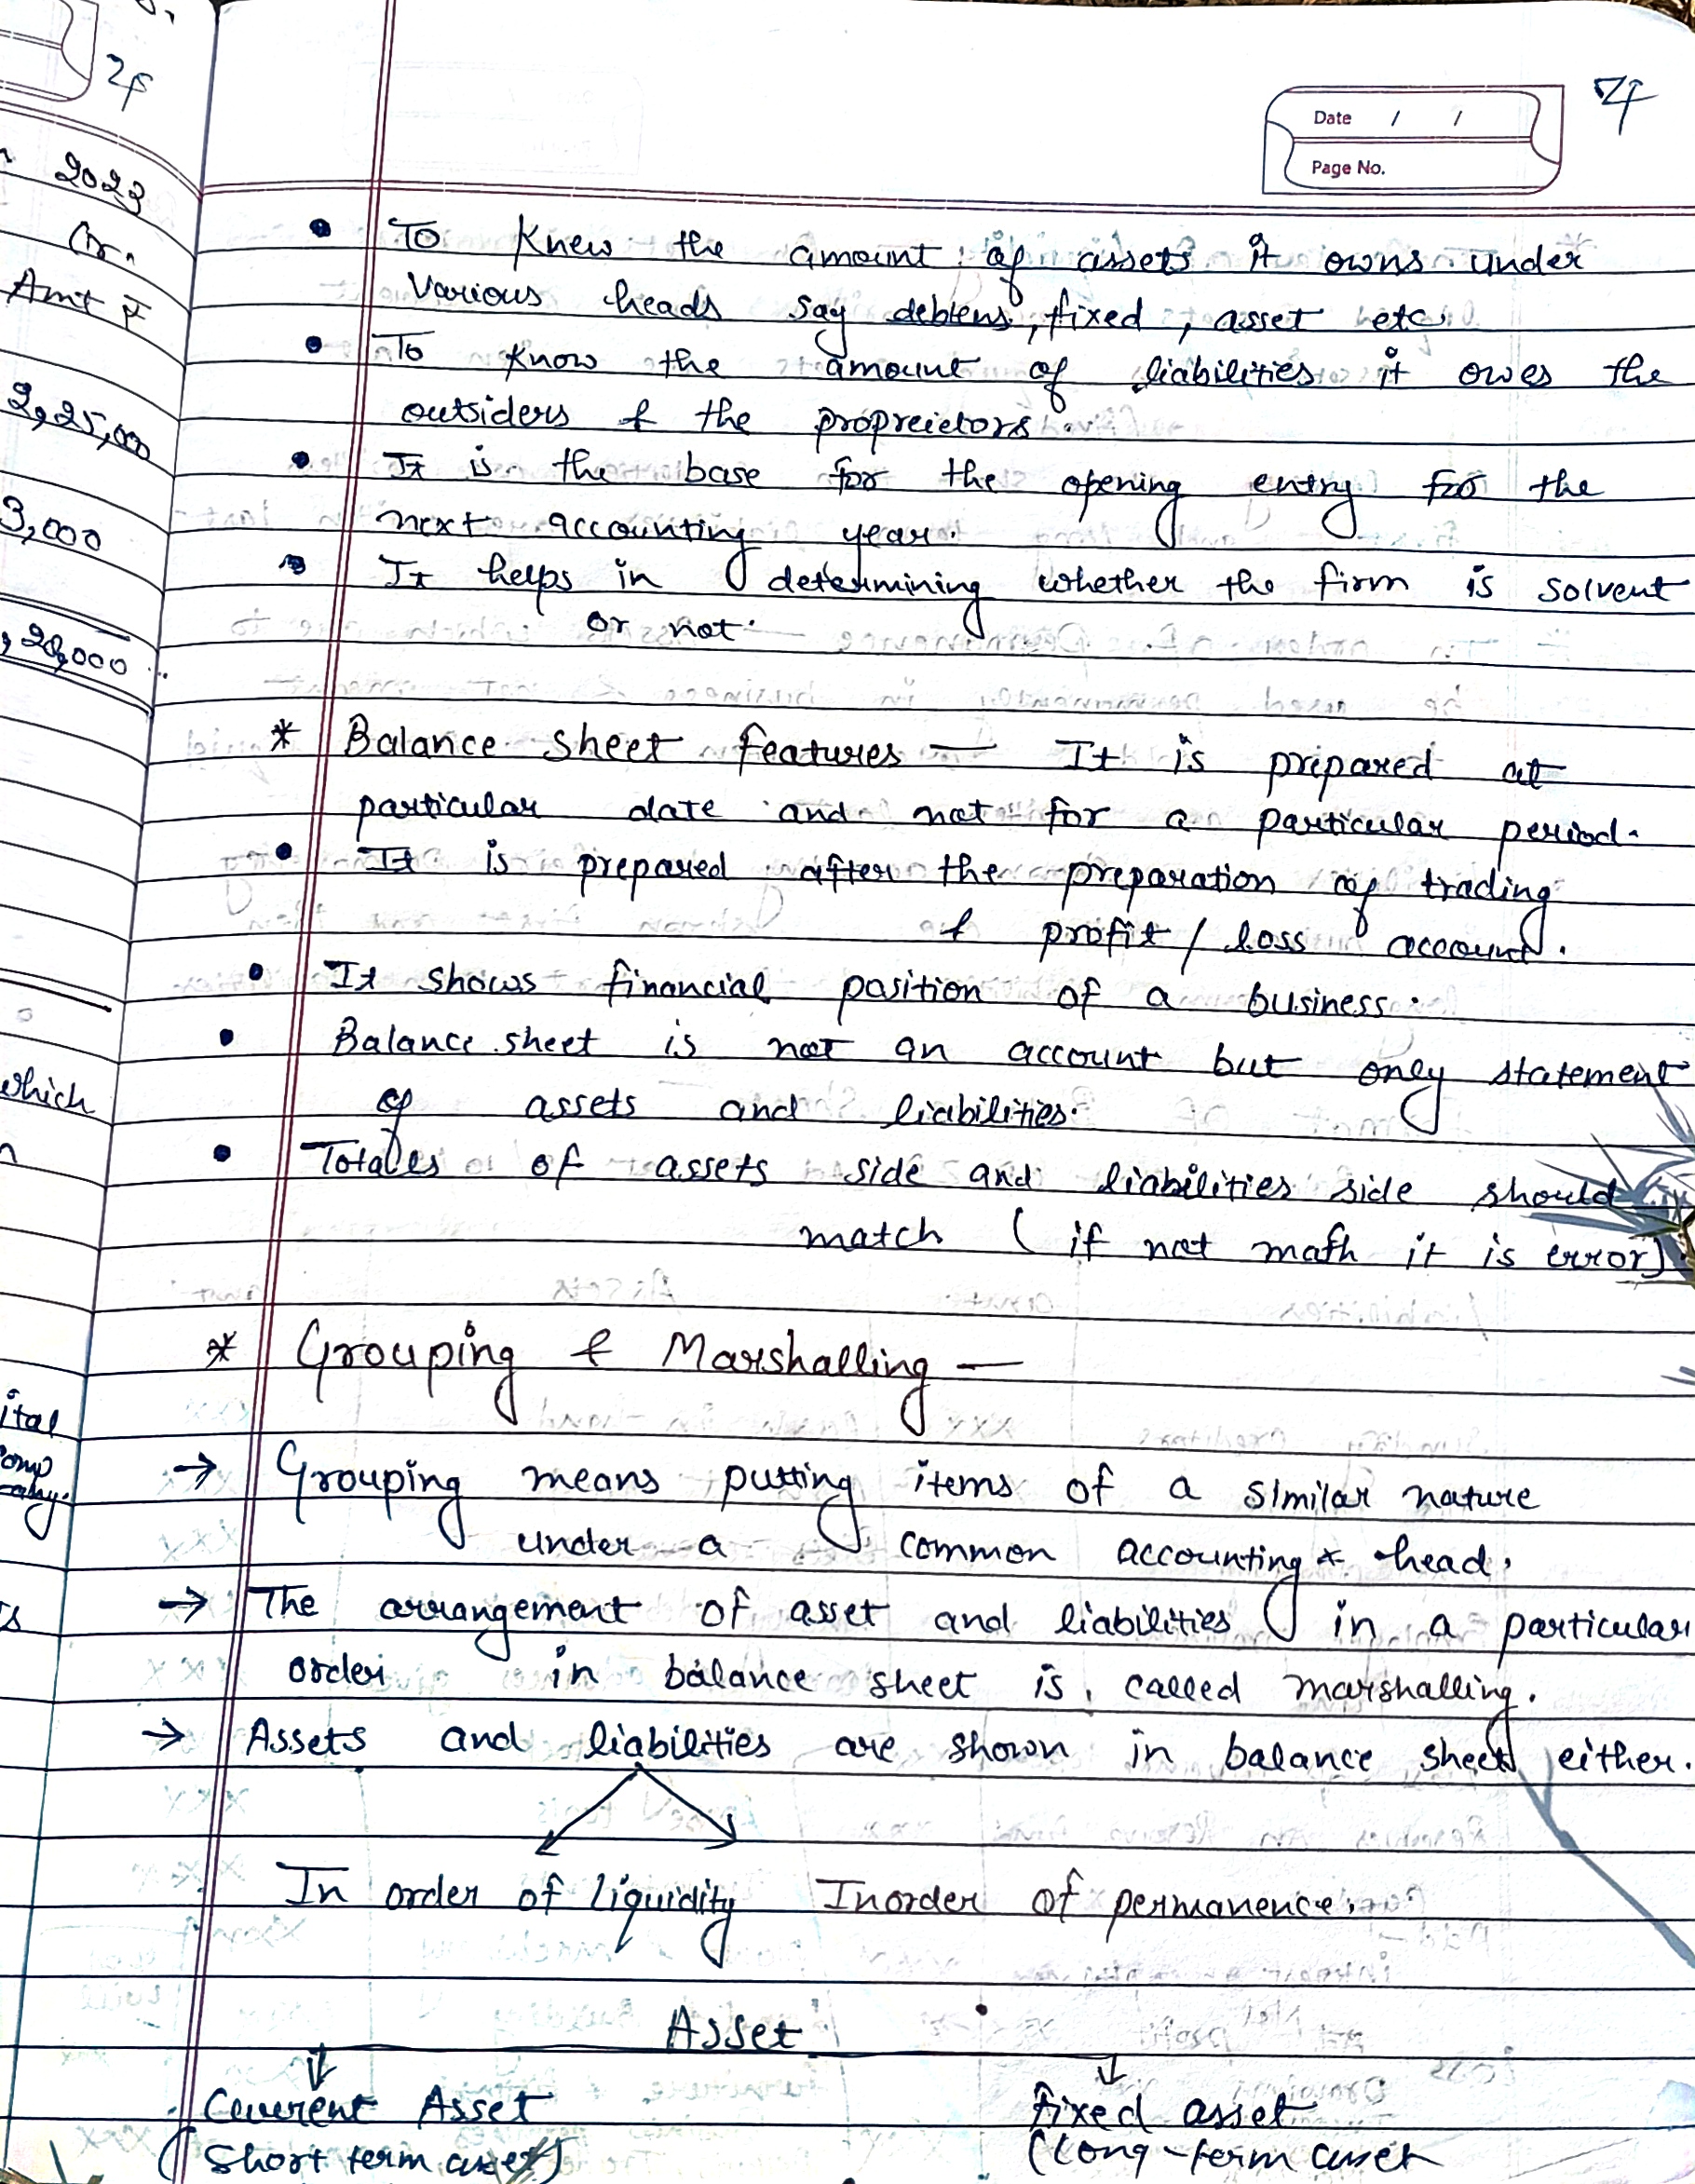 2023
Cr.
Amt ₹
2,25,000
3,000
,20,000
which
ital
Date / /
Page No.
• To Knew the amount of assets it owns under
various heads say debters, fixed, asset etc.
• To know the amount of liabilities it owes the
outsiders & the propreietors.
• It is the base for the opening entry for the
next accounting year.
• It helps in determining whether the firm is solvent
or not.
* Balance sheet features — It is prepared at
particular date and not for a particular period.
• It is prepared after the preparation of trading
& profit / loss account.
• It shows financial position of a business.
• Balance sheet is not an account but only statement
of assets and liabilities.
• Totales of assets side and liabilities side should
match ( if not math it is error)
* Grouping & Marshalling —
→ Grouping means putting items of a similar nature
under a common accounting head.
→ The arrangement of asset and liabilities in a particular
order in balance sheet is called marshalling.
→ Assets and liabilities are shown in balance sheet either.
In order of liquidity Inorder of permanence.
Asset
Current Asset fixed asset
(Short term asset) (Long-term asset